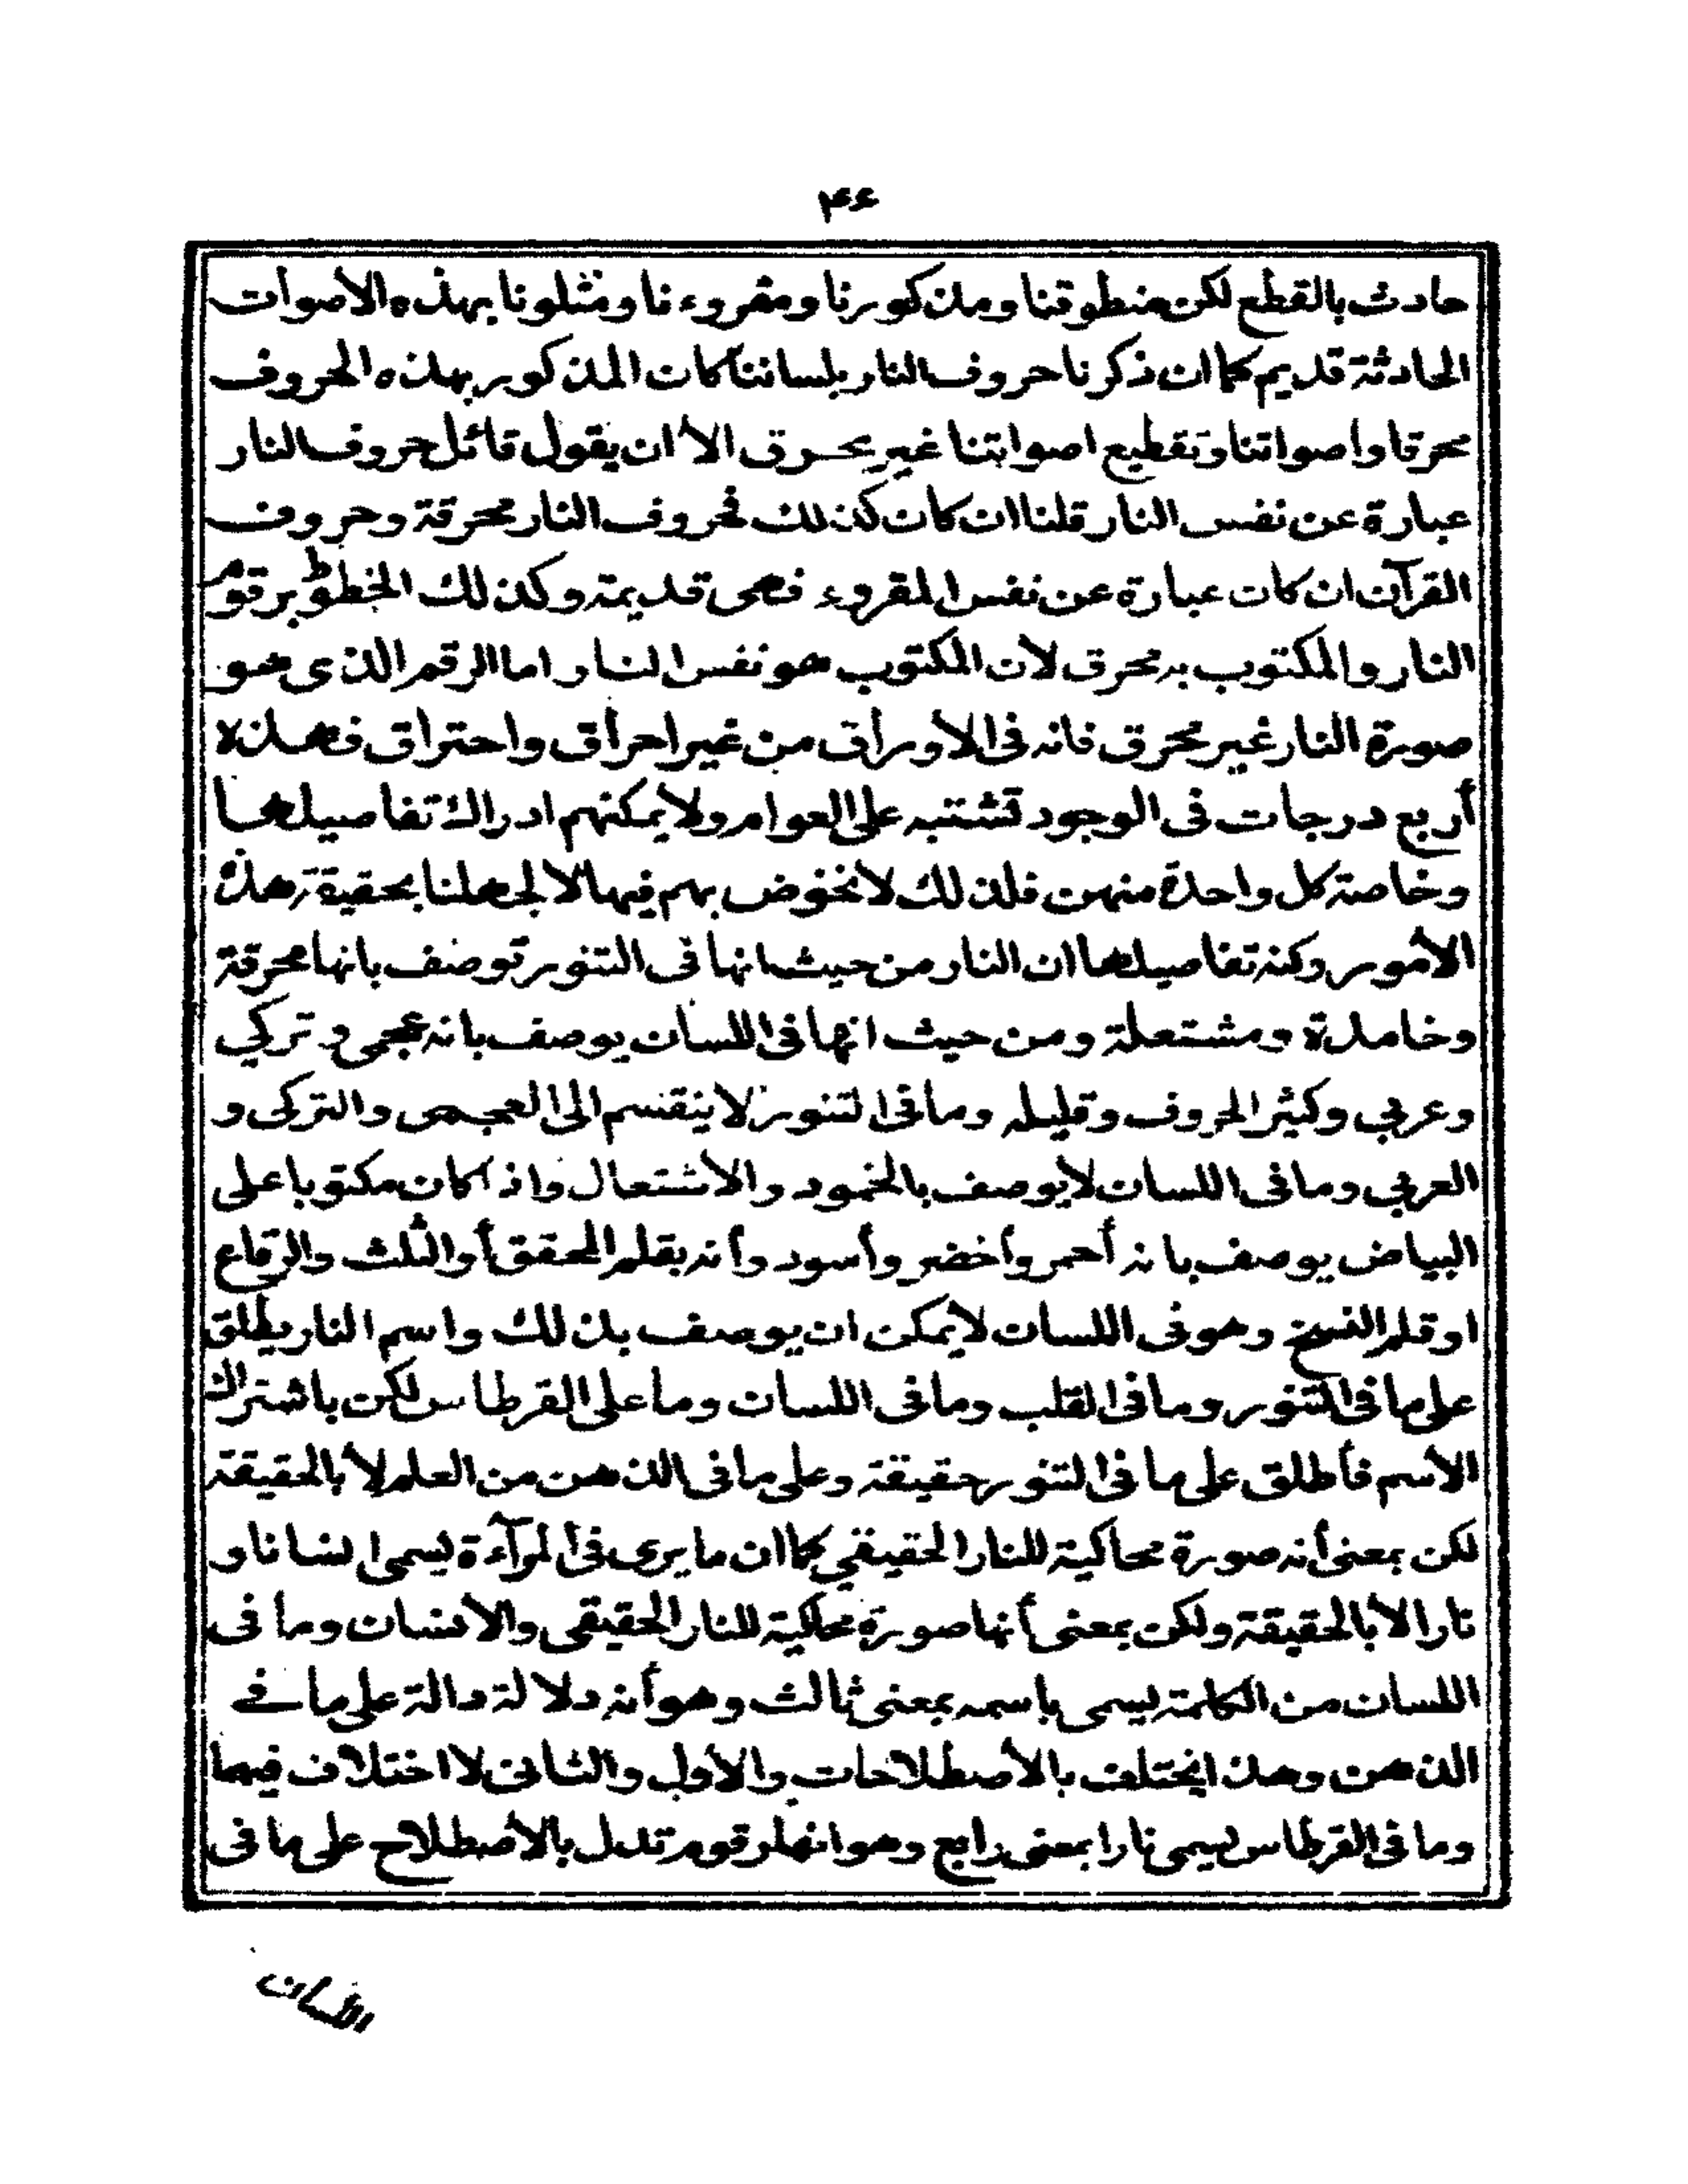 ۴۶
حادث بالقطع لكن منطوقنا ومذكورنا ومقروءنا ومتلونا بهذه الأصوات
الحادثة قديم كما ان ذكرنا حروف النار بلساننا كان المذكور بهذه الحروف
محرقا واصواتنا وتقطيع اصواتنا غير محرق الأ ان يقول قائل حروف النار
عبارة عن نفس النار قلنا ان كان كذلك فحروف النار محرقة وحروف
القرآن ان كان عبارة عن نفس المقروء فهى قديمة وكذلك الخطوط برقوم
النار والمكتوب به محرق لأن المكتوب هو نفس النار اما الرقم الذى هو
صورة النار غير محرق فانه فى الأوراق من غير احراق واحتراق فهذه
أربع درجات فى الوجود تشتبه على العوام ولا يمكنهم ادراك تفاصيلها
وخاصة كل واحدة منهن فلذلك لا نخوض بهم فيها لا لجهلنا بحقيقة هذه
الأمور وكنه تفاصيلها ان النار من حيث انها فى التنور توصف بانها محرقة
وخامدة ومشتعلة ومن حيث انها فى اللسان يوصف بانه عجمى و تركي
وعربي وكثير الحروف وقليله وما فى التنور لا ينقسم الى العجمى والتركى و
العربي وما فى اللسان لا يوصف بالخمود والأشتعال واذا كان مكتوبا على
البياض يوصف بانه أحمر وأخضر وأسود وأنه بقلم المحقق أو الثلث والرقاع
او قلم النسخ وهو فى اللسان لا يمكن ان يوصف بذلك واسم النار يطلق
على ما فى التنور وما فى القلب وما فى اللسان وما على القرطاس لكن باشتراك
الأسم فأطلق على ما فى التنور حقيقة وعلى ما فى الذهن من العلم لا بالحقيقة
لكن بمعنى أنه صورة محاكية للنار الحقيقي كما ان ما يرى فى المرآءة يسمى انسانا و
نارا لا بالحقيقة ولكن بمعنى أنها صورة محاكية للنار الحقيقى والأنسان وما فى
اللسان من الكلمة يسمى باسمه بمعنى ثالث وهو أنه دلالة دالة على ما في
الذهن وهذا يختلف بالأصطلاحات والأول والثانى لا اختلاف فيهما
وما فى القرطاس يسمى نارا بمعنى رابع وهو انها رقوم تدل بالأصطلاح على ما فى
اللسان